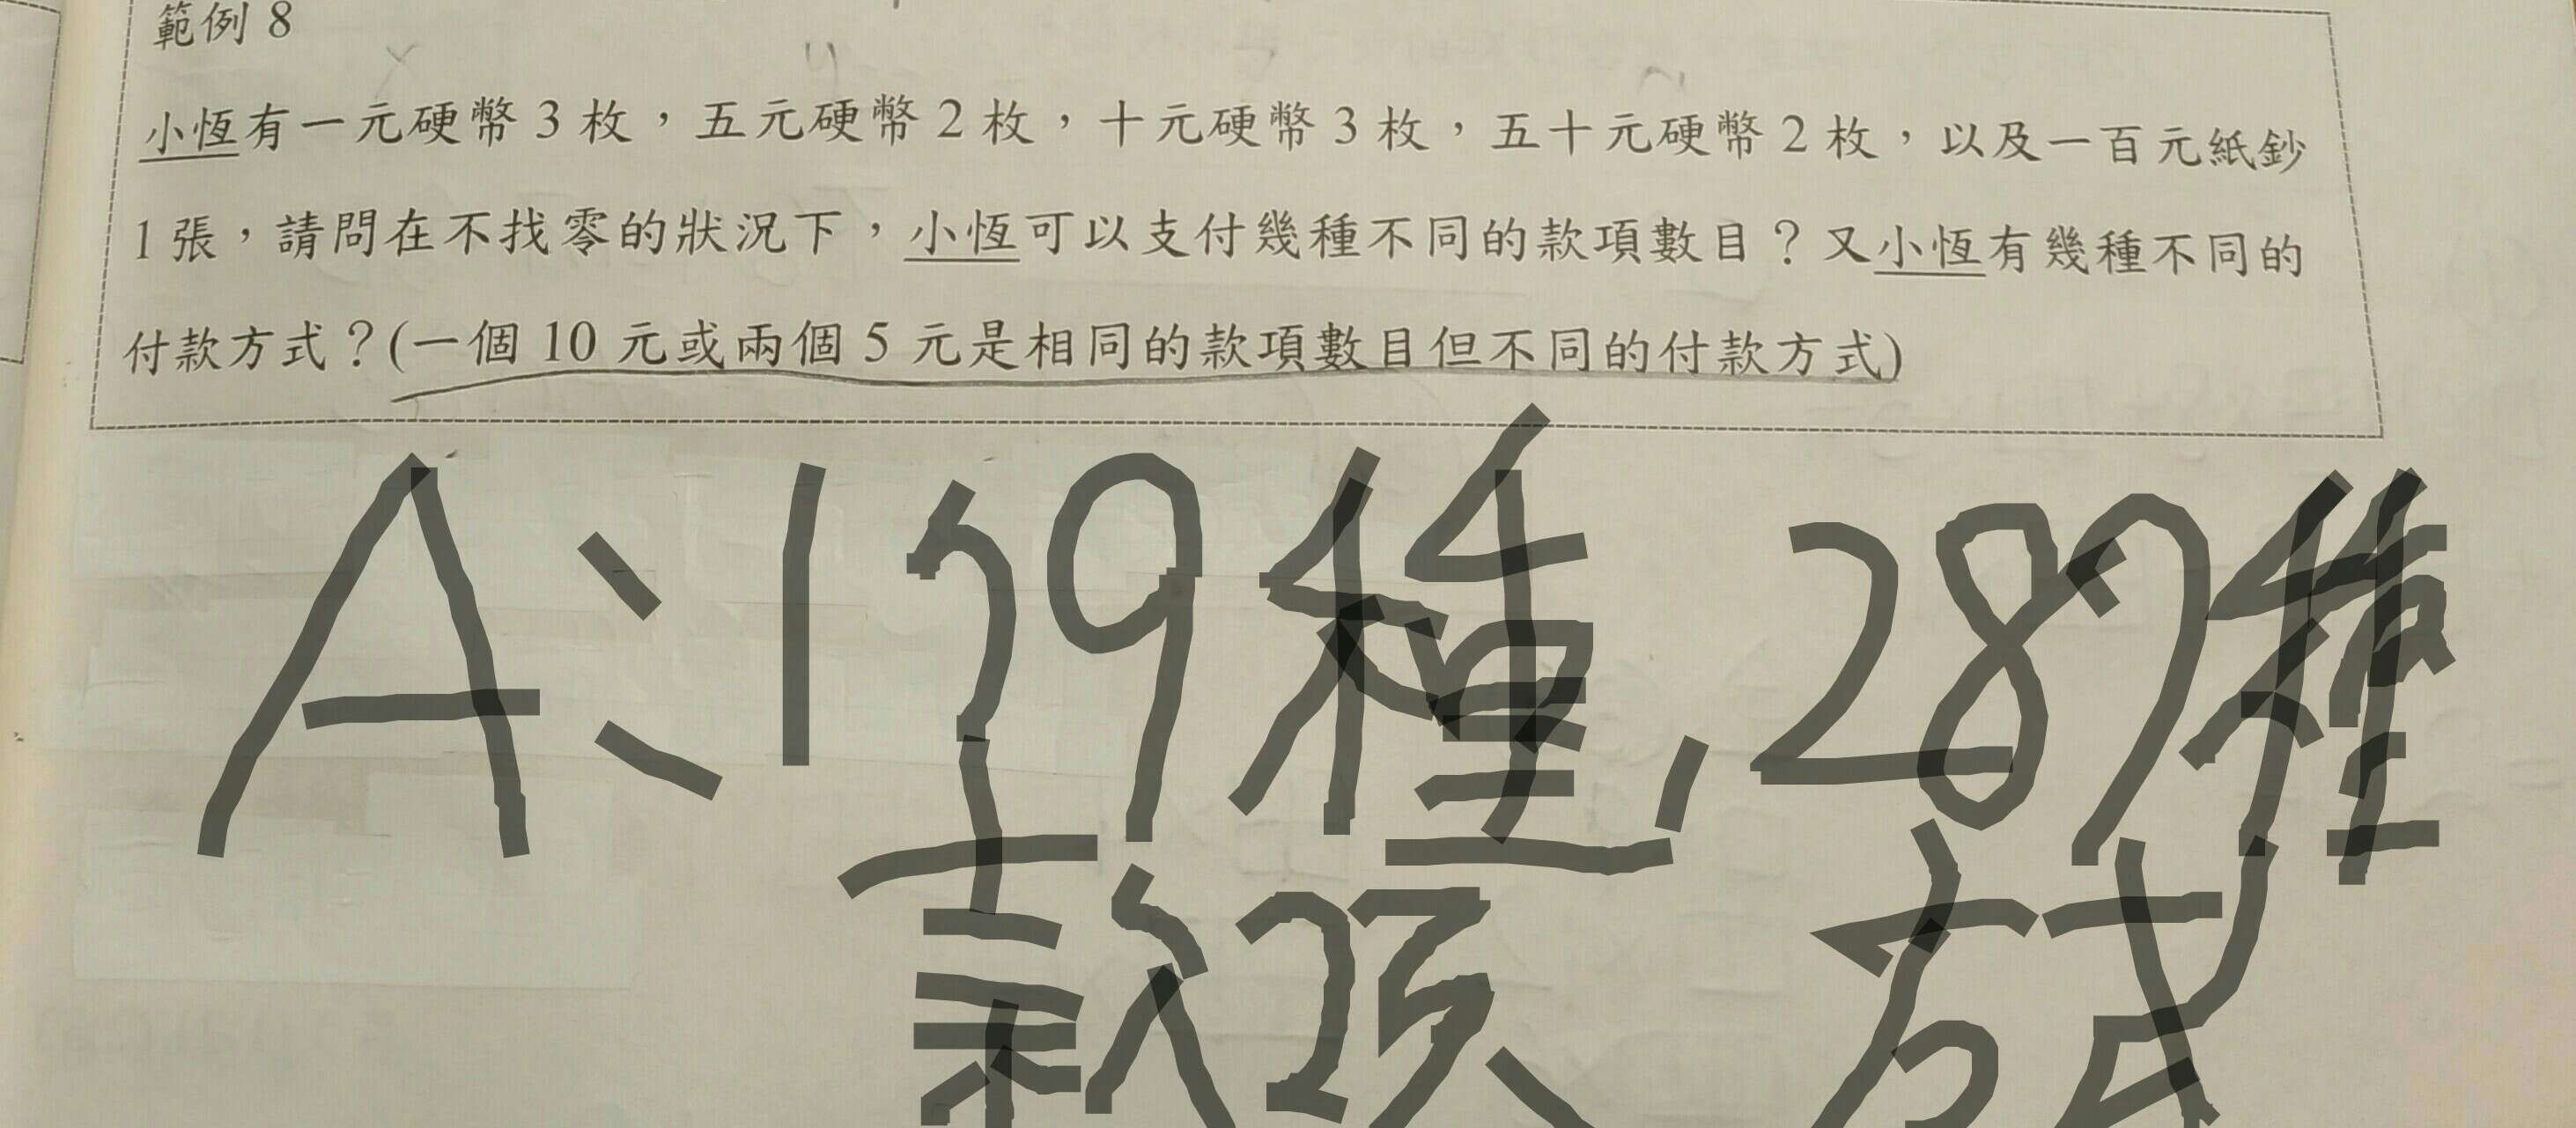 範例 8
小恆有一元硬幣 3 枚，五元硬幣 2 枚，十元硬幣 3 枚，五十元硬幣 2 枚，以及一百元紙鈔
1 張，請問在不找零的狀況下，小恆可以支付幾種不同的款項數目？又小恆有幾種不同的
付款方式？(一個 10 元或兩個 5 元是相同的款項數目但不同的付款方式)
A：179種，287種
款項 方式